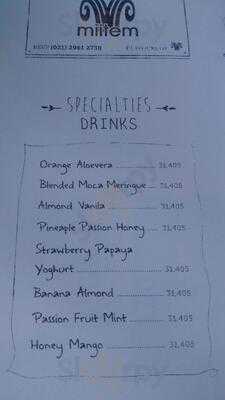 miitem
SPECIALTIES
DRINKS
Orange Aloevera ................ 31,405
Blended Moca Meringue .... 31,405
Almond Vanila .................... 31,405
Pineapple Passion Honey .... 31,405
Strawberry Papaya
Yoghurt ............................. 31,405
Banana Almond ......................... 31,405
Passion Fruit Mint .............. 31,405
Honey Mango ........................ 31,405